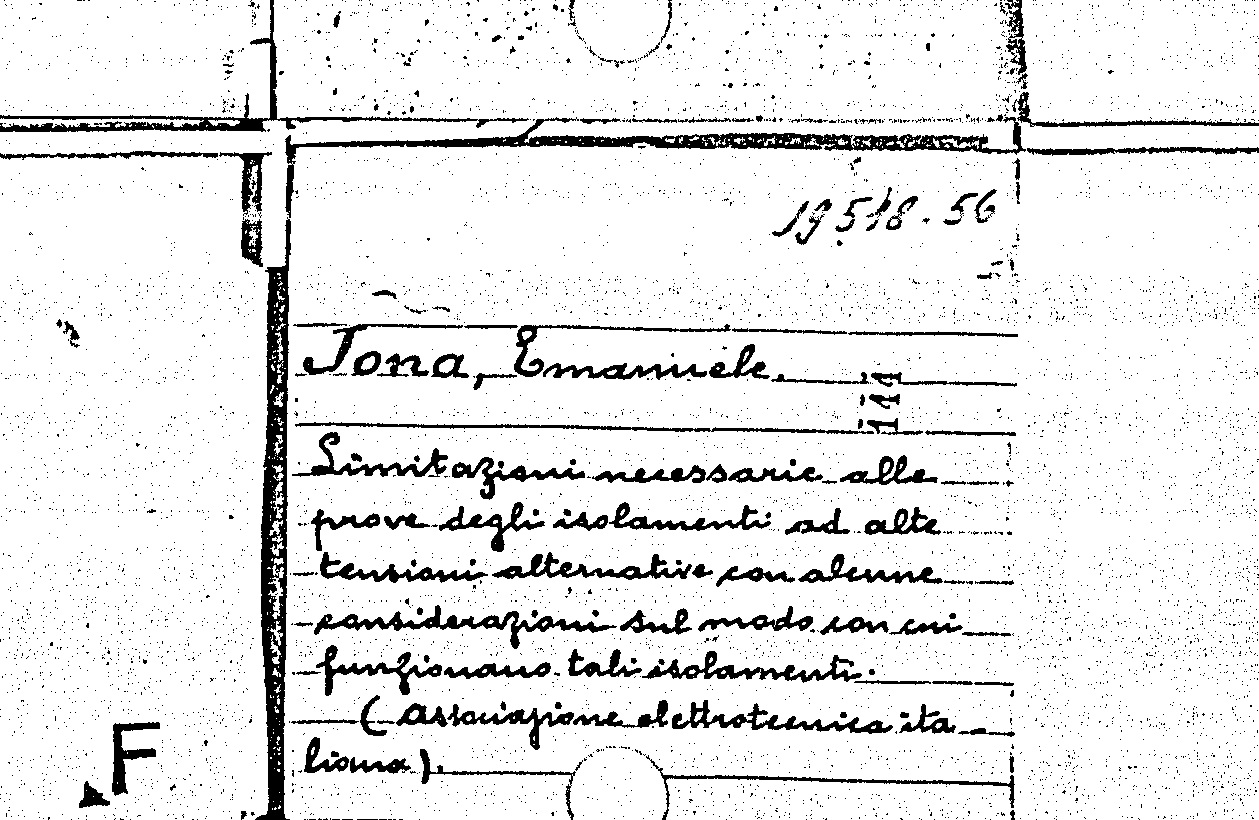 19518-56
Jona, Emanuele.
111
Limitazioni necessarie alle
prove degli isolamenti ad alte
tensioni alternative con alcune
considerazioni sul modo con cui
funzionano tali isolamenti.
(associazione elettrotecnica ita-
liana).
F